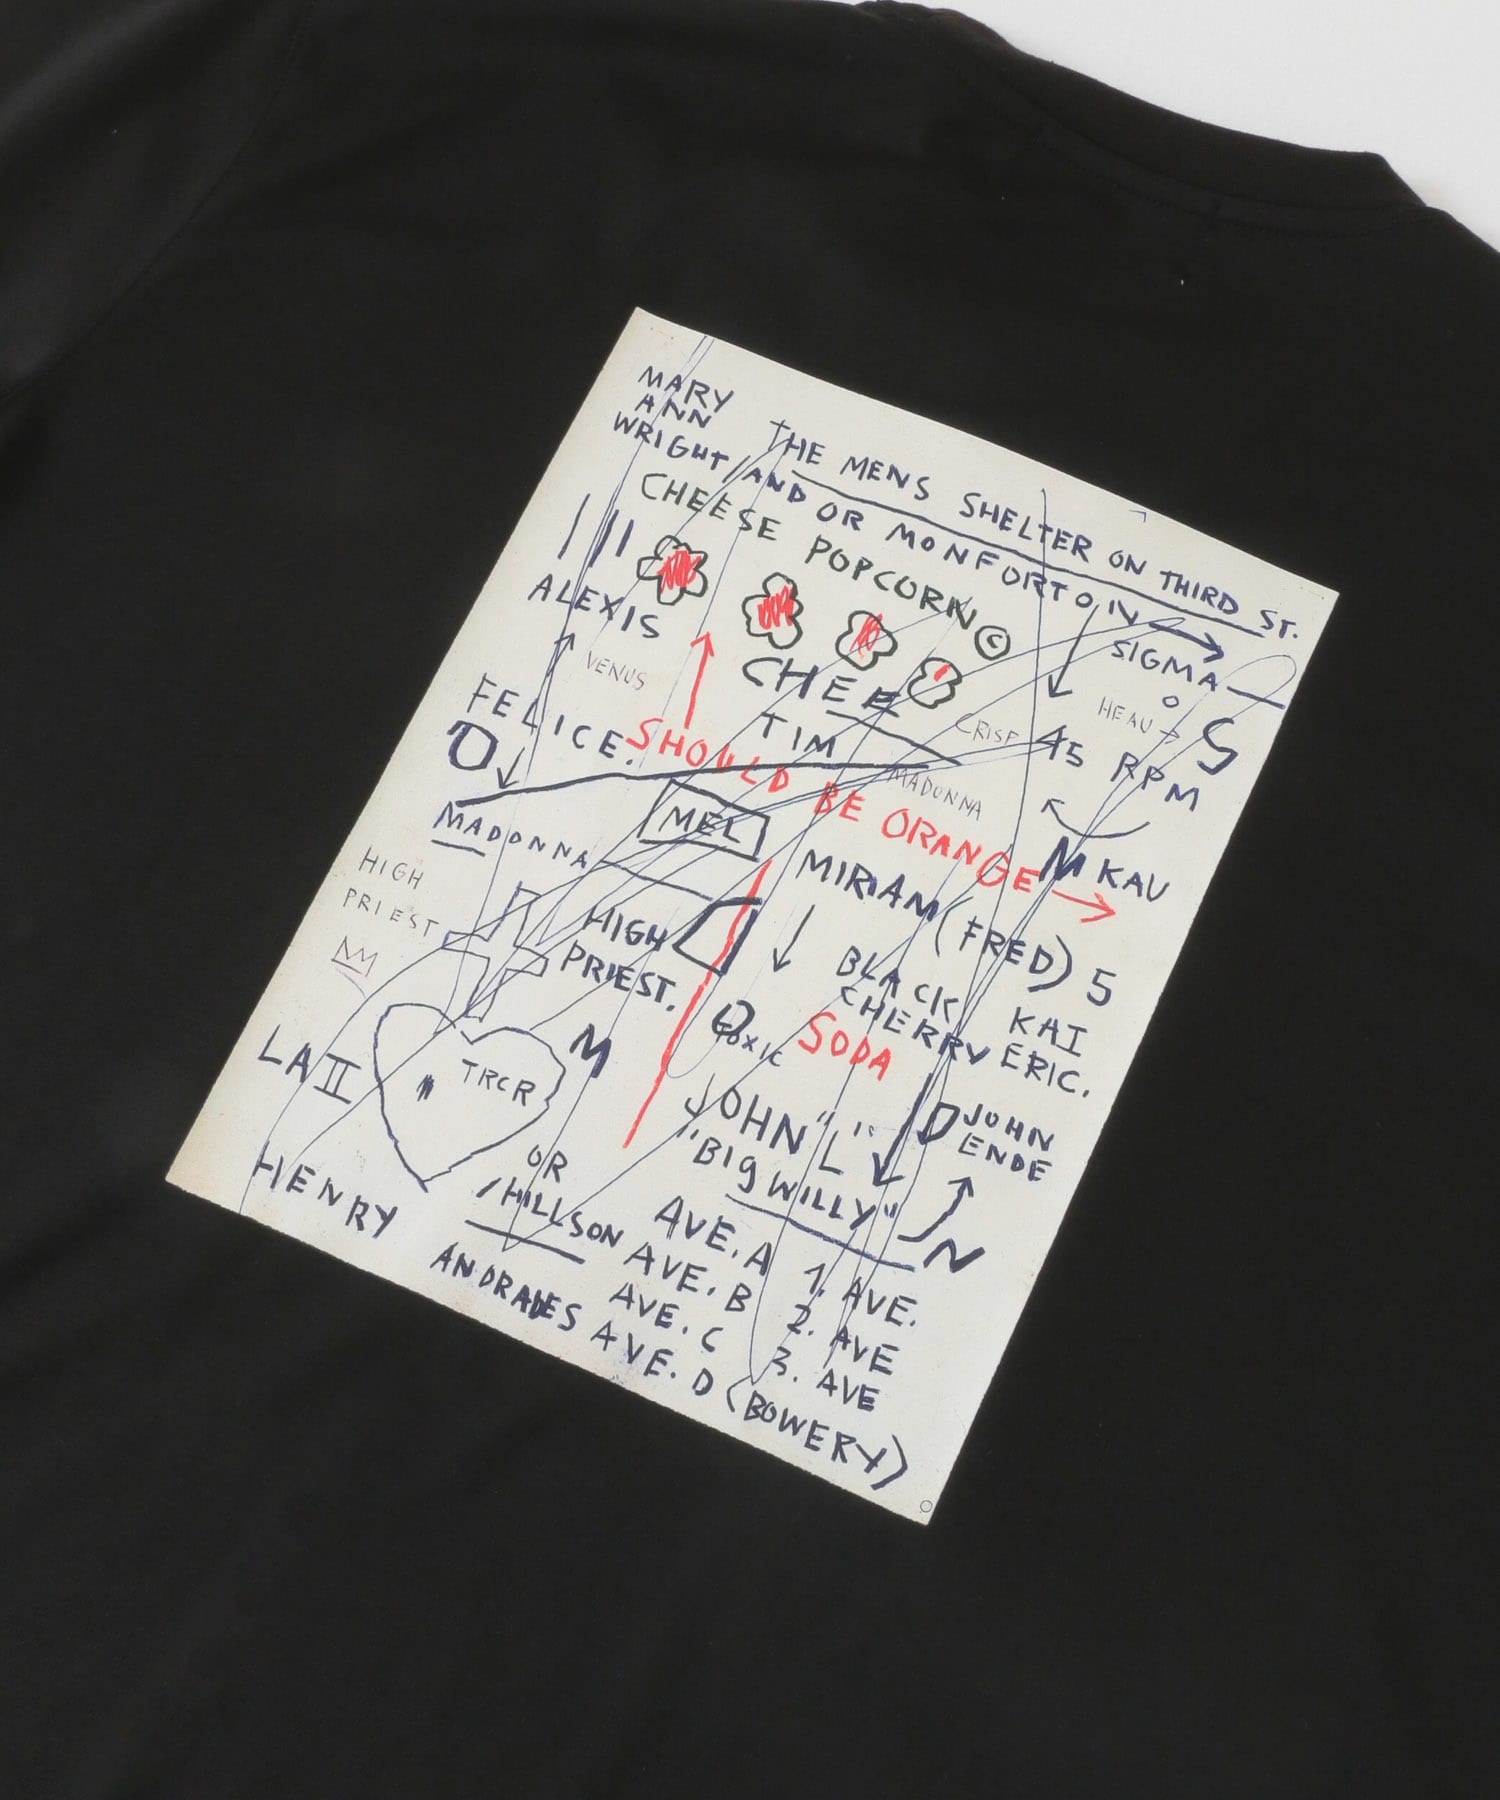 MARY
ANN
WRIGHT/AND OR MONFORTON
THE MENS SHELTER ON THIRD ST.
CHEESE POPCORN ©
SIGMA
ALEXIS
VENUS
CHEE
HEAU
S
FELICE.
TIM
CRISP
45 RPM
O
SHOULD BE ORANGE
MADONNA
MEL
MADONNA
M KAU
HIGH
PRIEST
MIRIAM (FRED) 5
HIGH
PRIEST.
BLACK
CHERRY
KAI
ERIC.
TOXIC
SODA
M
LA II
TRCR
JOHN "L"
"BIG WILLY"
D
JOHN
ENDE
N
HENRY
OR
/HILLSON
AVE. A
AVE. B
AVE. C
ANDRADES AVE. D (BOWERY)
1. AVE.
2. AVE
3. AVE